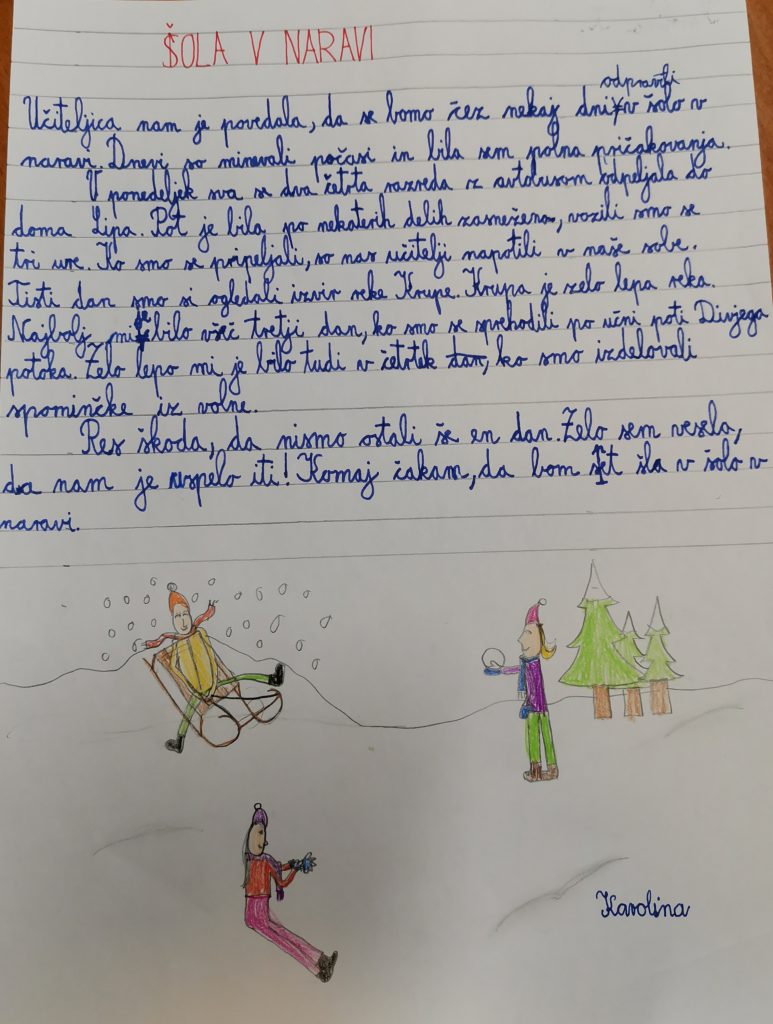 ŠOLA V NARAVI
odpravili
Učiteljica nam je povedala, da se bomo čez nekaj dni v šolo v
naravi. Dnevi so minevali počasi in bila sem polna pričakovanja.
V ponedeljek sva se dva četrta razreda z avtobusom odpeljala do
doma Lipa. Pot je bila po nekaterih delih zasnežena, vozili smo se
tri ure. Ko smo se pripeljali, so nas učitelji napotili v naše sobe.
Tisti dan smo si ogledali izvir reke Krupe. Krupa je zelo lepa reka.
Najbolj mi je bilo všeč tretji dan, ko smo se sprehodili po učni poti Divjega
potoka. Zelo lepo mi je bilo tudi v četrtek dan, ko smo izdelovali
spominčke iz volne.
Res škoda, da nismo ostali še en dan. Zelo sem vesela,
da nam je uspelo iti! Komaj čakam, da bom šla v šolo v
naravi.
Karolina